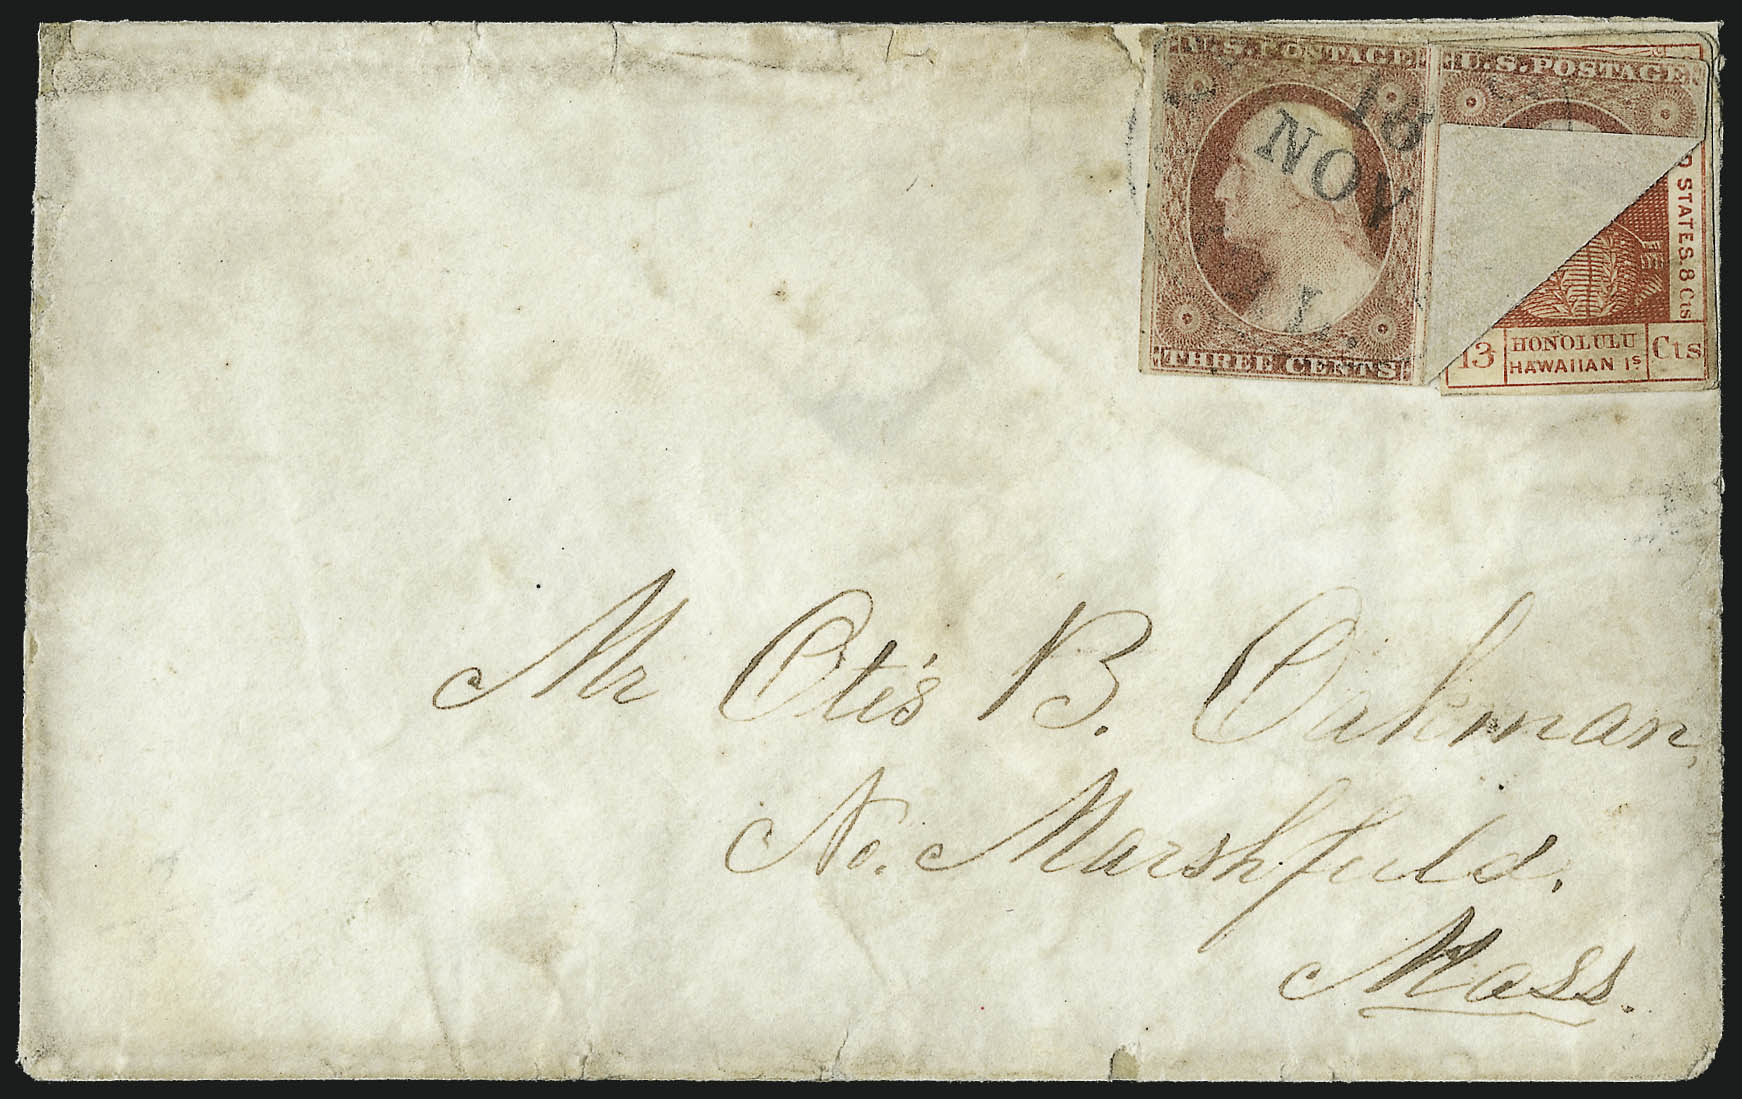 U.S. POSTAGE
18
NOV
THREE CENTS
U.S. POSTAGE
D STATES. 8 Cts
13 HONOLULU Cts
HAWAIIAN Iˢ
Mr Otis B. Oakman,
No. Marshfield.
Mass.